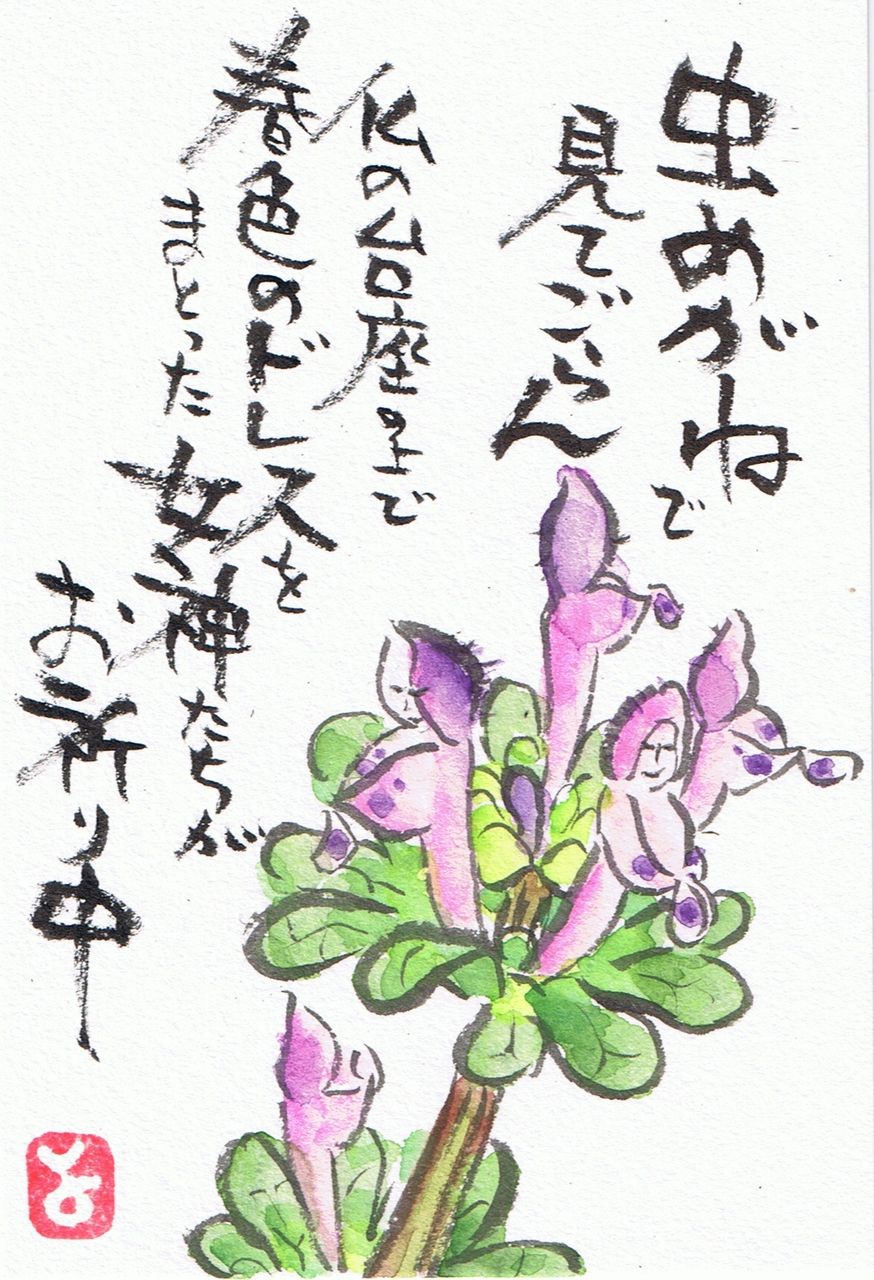 虫めがねで
見てごらん
仏の台座の上で
春色のドレスを
まとった女神たちが
お祈り中
と